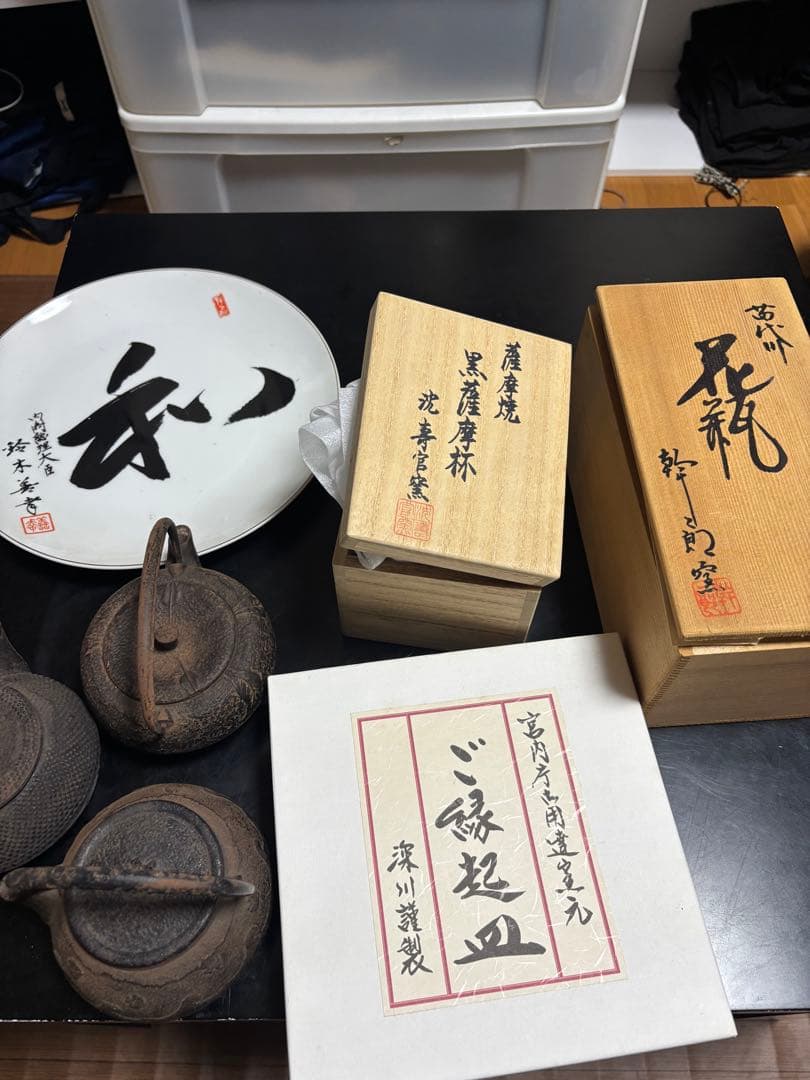 和
内閣総理大臣
鈴木善幸
薩摩焼
黒薩摩杯
沈壽官窯
苗代川
花瓶
幹二郎窯
宮内庁御用達窯元
ご縁起皿
深川謹製